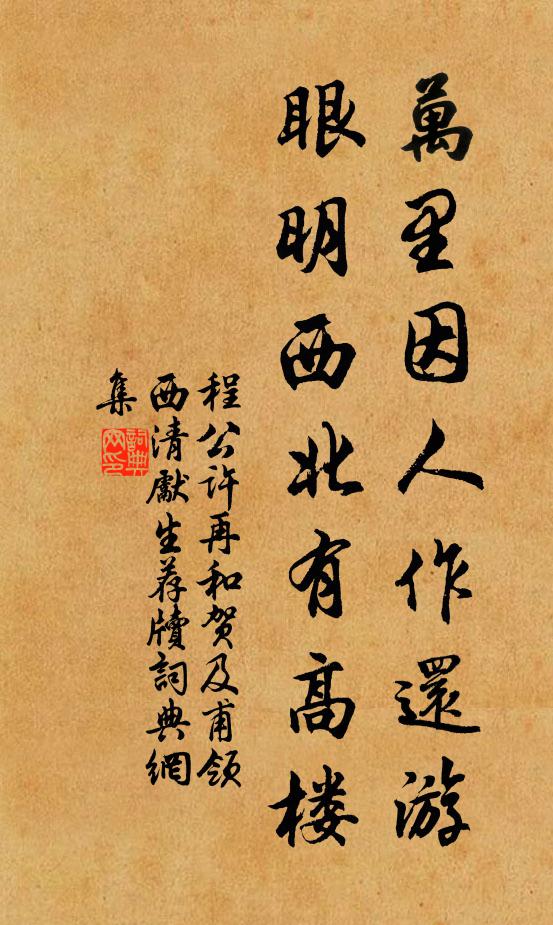 萬里因人作還游
眼明西北有高楼
程公许再和贺及甫领
西清獻生荐牘詞典網
集
詞典网印